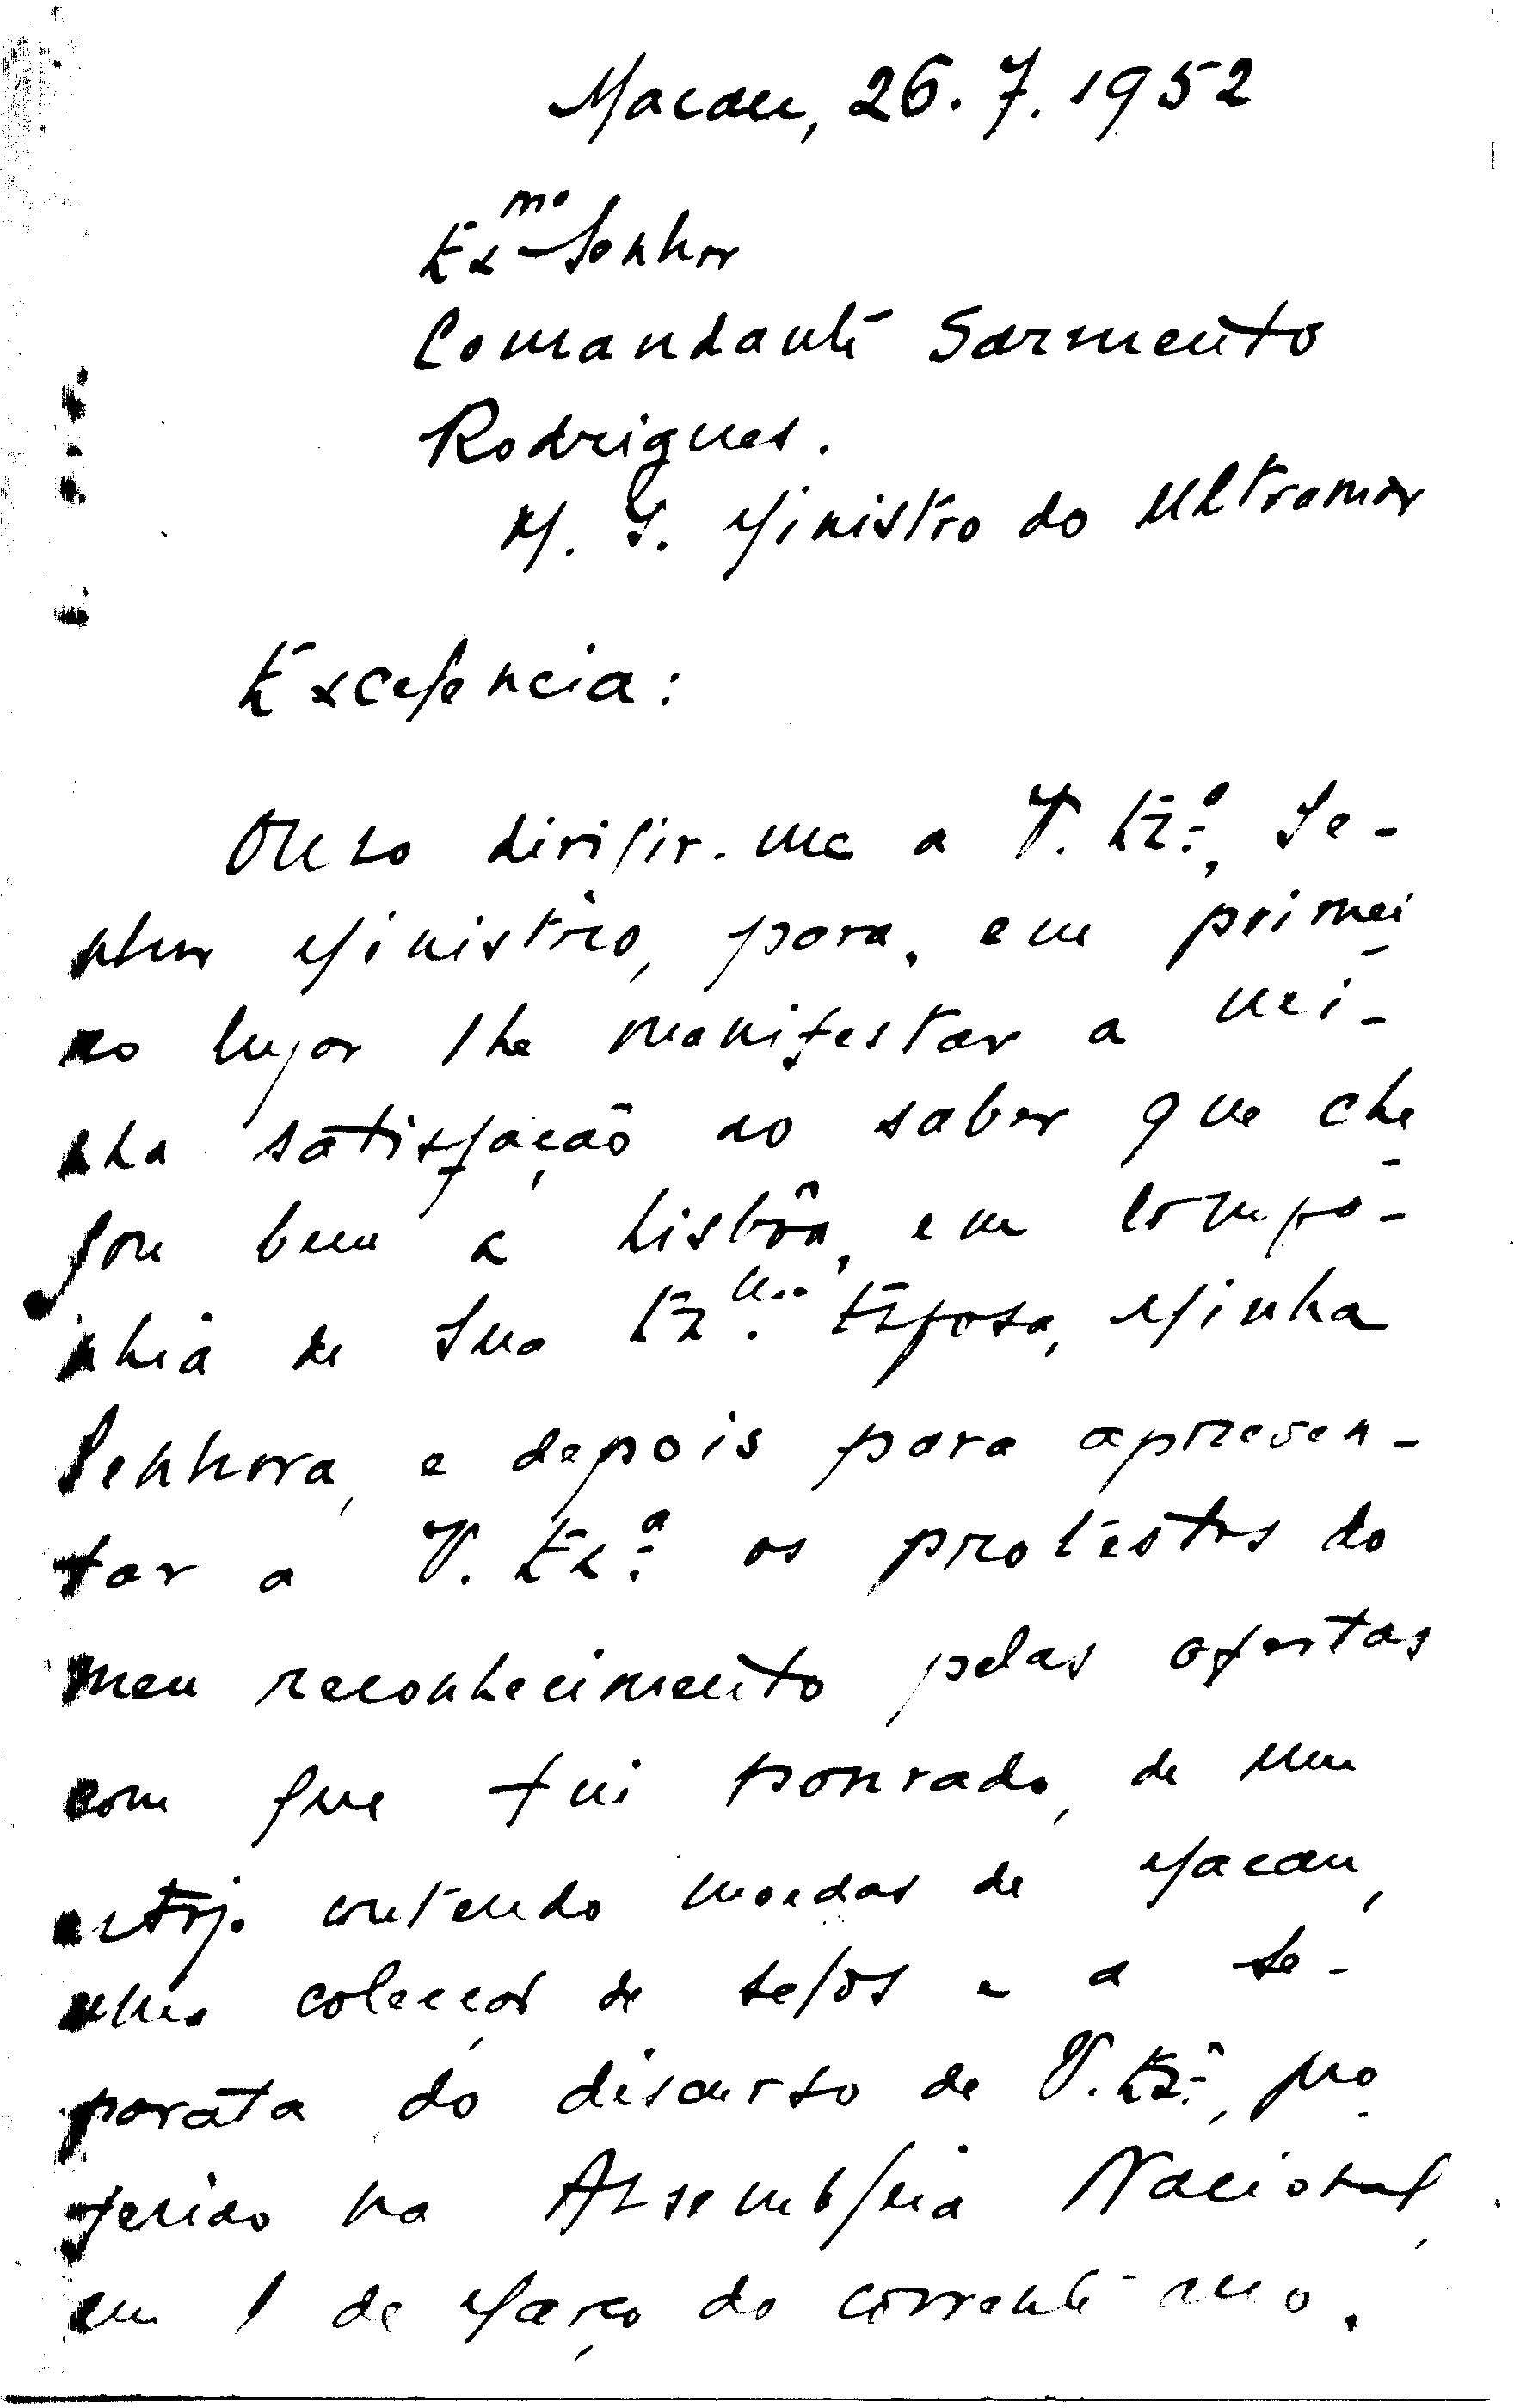 Macau, 26.7.1952
Exmo Senhor
Comandante Sarmento
Rodrigues.
M. G. Ministro do Ultramar
Excelencia:
Ouso dirigir-me a V. Exª, Se-
nhor Ministro, para, em primei
ro lugar lhe manifestar a mi-
nha satisfação ao saber que che
gou bem a Lisbôa, em compa-
nhia de Sua Exma Esposa, Minha
Senhora, e depois para apresen-
tar a V. Exª os protestos do
meu reconhecimento pelas ofertas
com que fui honrado, de um
estojo contendo moedas de Macau,
uma colecção de selos e a se-
parata do discurso de V. Exª, pro
ferido na Assembleia Nacional,
em 1 de Março do corrente ano.